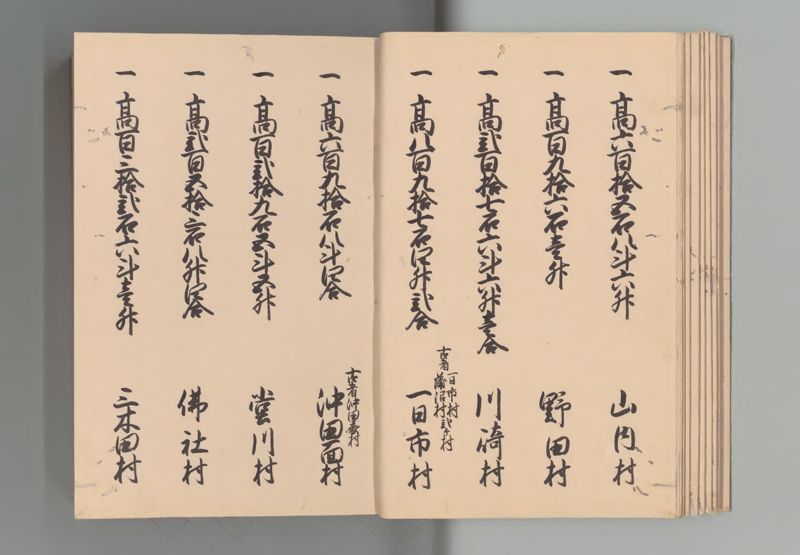 一 高六百拾五石八斗六升 山内村
一 高百九拾六石壱升 野田村
一 高弐百拾七石六斗六升壱合 川崎村
一 高八百九拾七石四升弐合 一日市村
古者一日市村
蒲沼村弐ケ村
一 高六百九拾石八斗四合 沖田面村
古者沖田表村
一 高百弐拾九石五斗五升 堂川村
一 高弐百五拾二石八升四合 佛社村
一 高百三拾弐石六斗壱升 三木田村